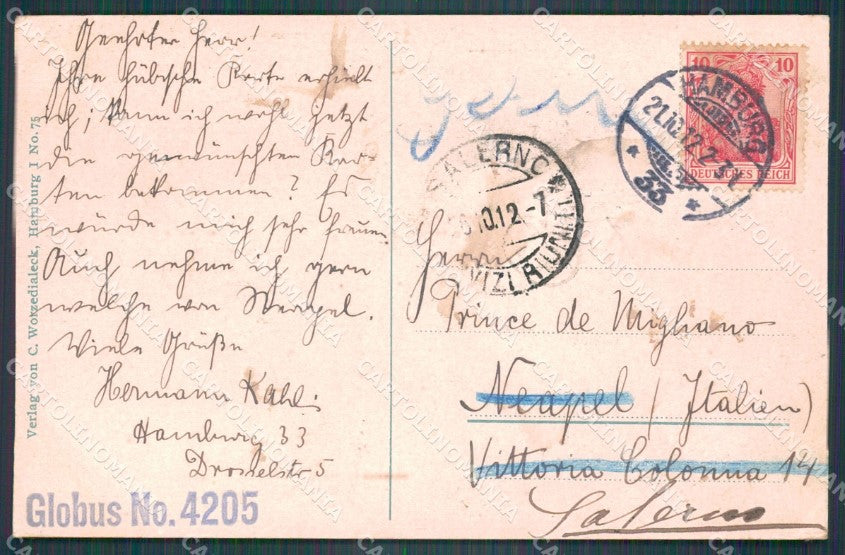 Geehrter Herr!
Ihre hübsche Karte erhielt
ich; kann ich wohl jetzt
die gewünschten Kar-
ten bekommen? Es
würde mich sehr freuen.
Auch nehme ich gern
welche von Neapel.
Viele Grüße
Hermann Kahl.
Hamburg 33
Drosselstr 5
Globus No. 4205
Verlag von C. Worzedialeck, Hamburg 1 No. 75
10 10
DEUTSCHES REICH
HAMBURG
21.10.12.2-3
* 33 *
SALERNO
10.12.-7
Herrn
Prince de Migliano
Neapel (Italien)
Vittoria Colonna 14
Salerno
CARTOLINOMANIA